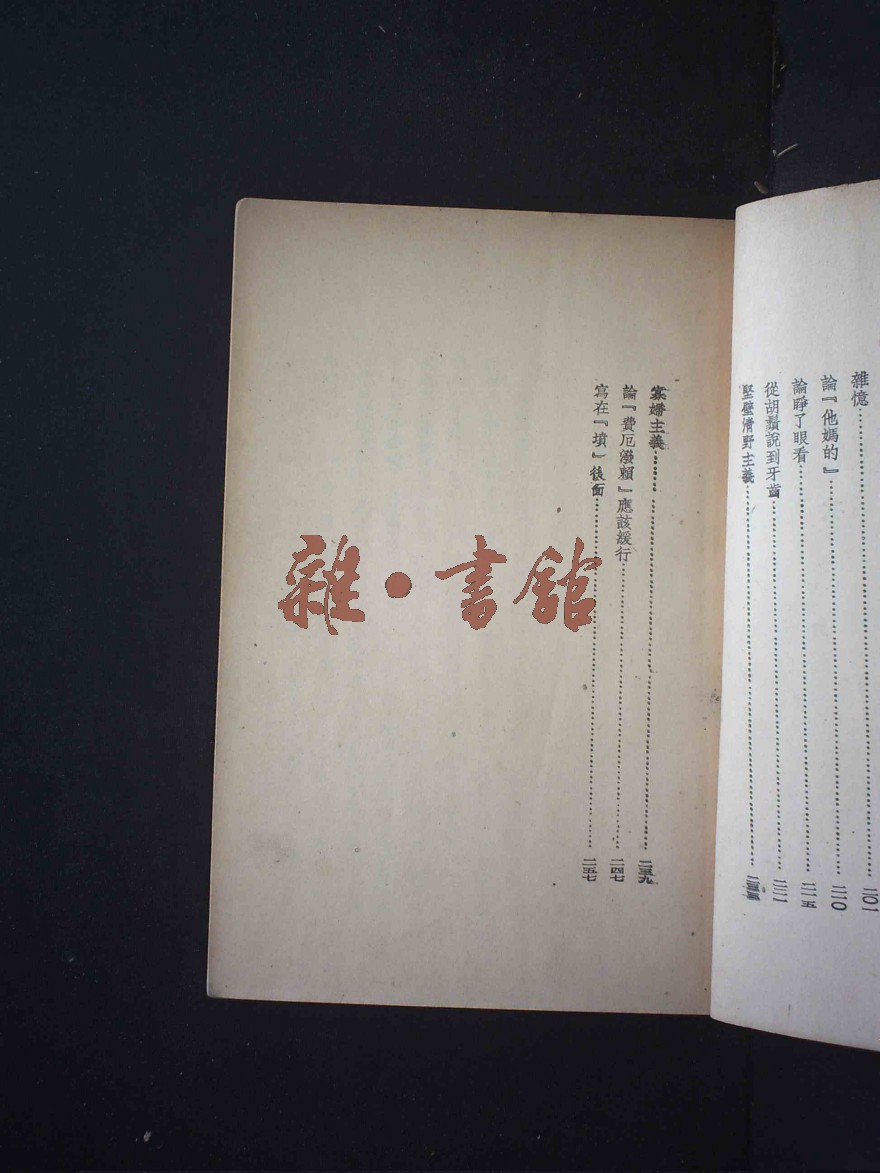 雜憶……二〇一
論『他媽的』……二一〇
論睜了眼看……二一五
從胡鬚說到牙齒……二二一
堅壁清野主義……二三三
寡婦主義……二三九
論『費厄潑賴』應該緩行……二四七
寫在『墳』後面……二五七
雜·書館